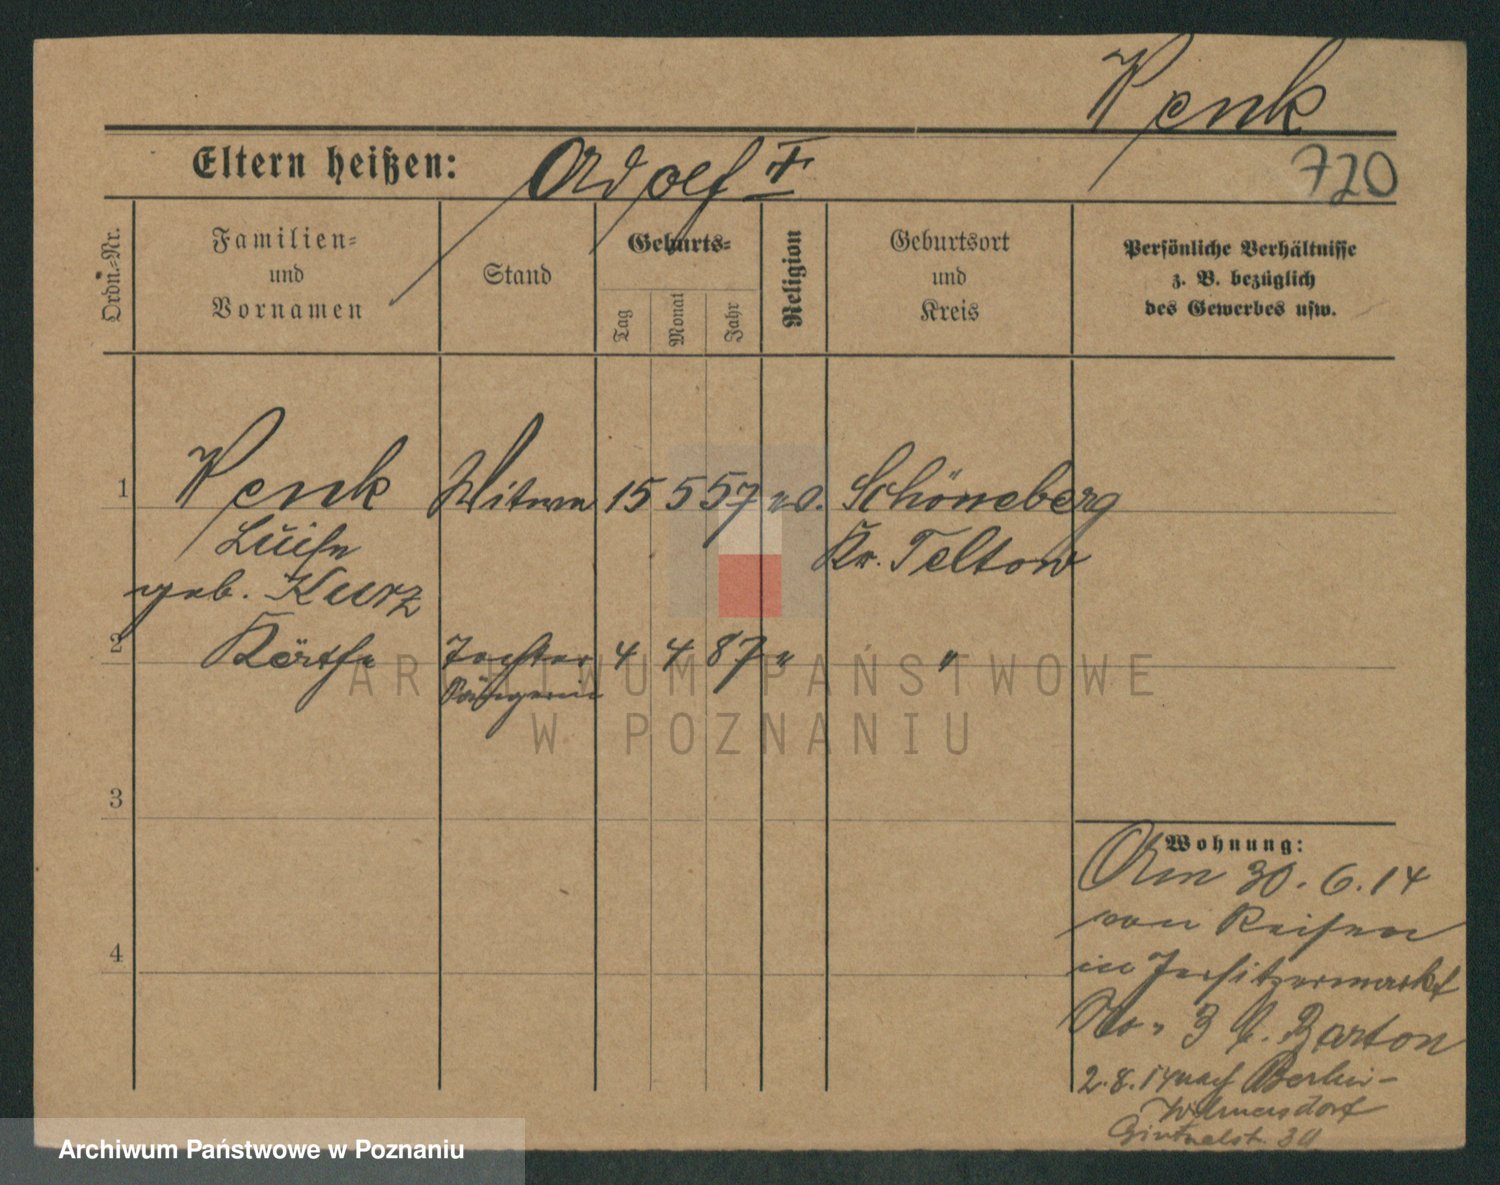 Wenk
Eltern heißen: Adolf †
720
Ordn.-Nr.
Familien-
und
Vornamen
Stand
Geburts-
Tag
Monat
Jahr
Religion
Geburtsort
und
Kreis
Persönliche Verhältnisse
z. B. bezüglich
des Gewerbes usw.
1 Wenk Witwe 15 5 57 ev. Schöneberg
Luise Kr. Teltow
geb. Kurz
2 Käthe Tochter 4 4 87 " "
3
4
Wohnung:
Am 30.6.14
von Reisen
in Jersitzermarkt
No. 3 b. Barton
2.8.14 nach Berlin-
Wilmersdorf
34
ARCHIWUM PAŃSTWOWE
W POZNANIU
Archiwum Państwowe w Poznaniu